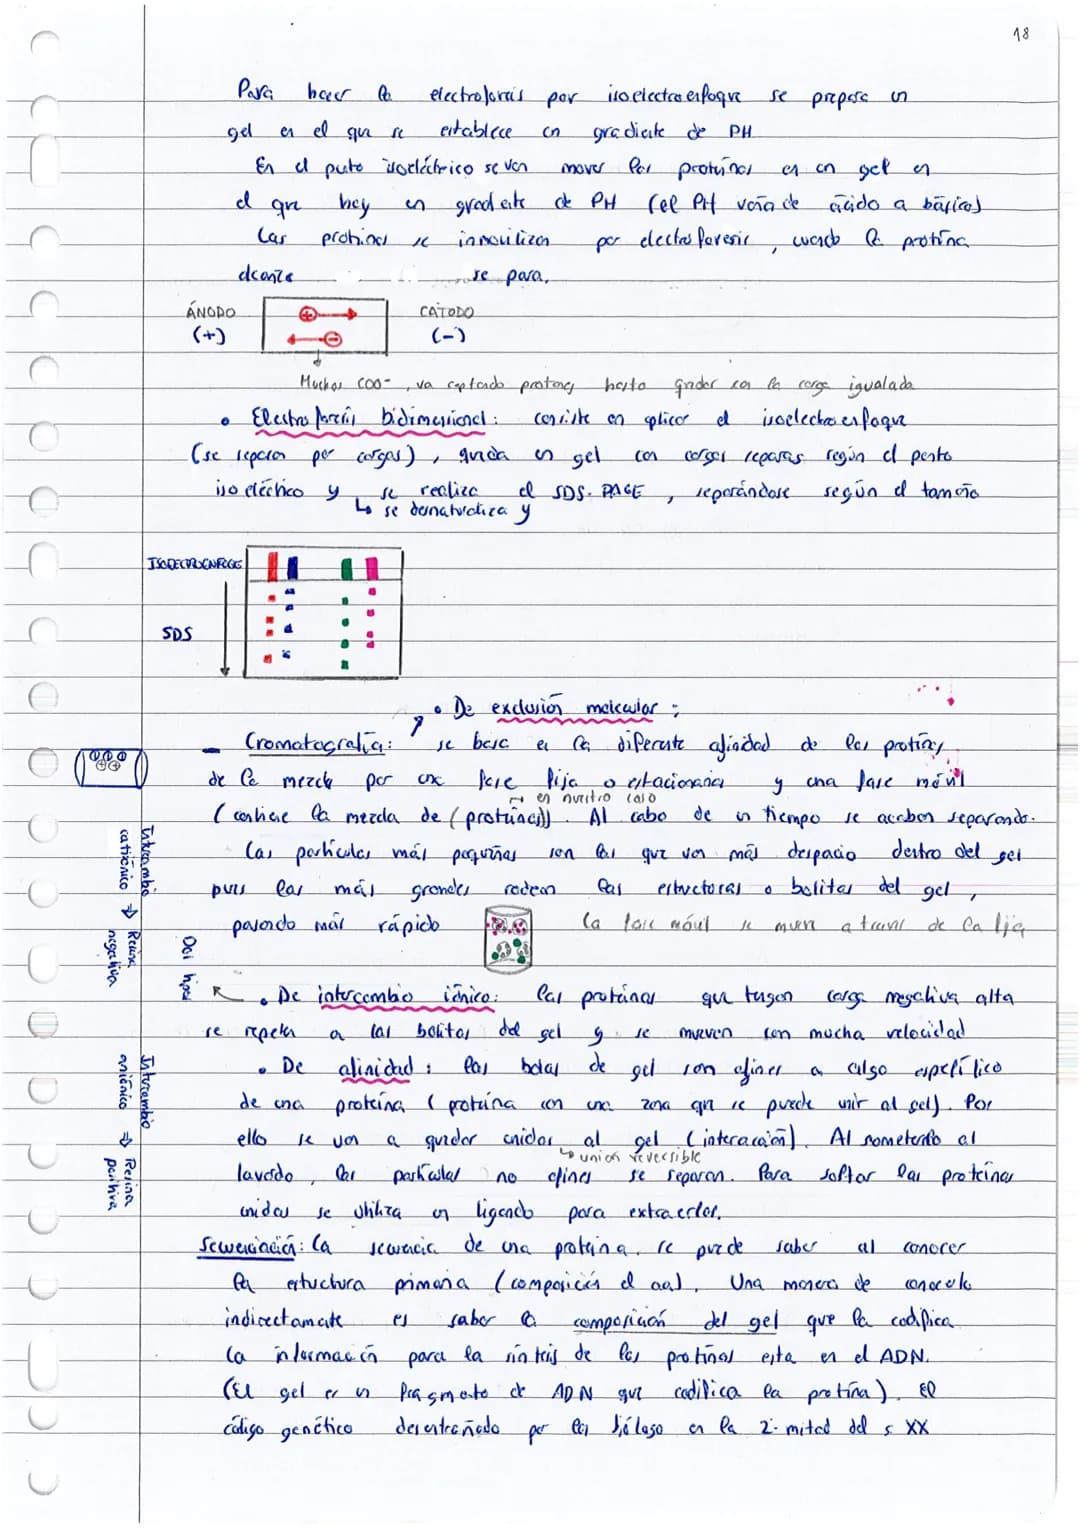 18
Para hacer la electroforesis por isoelectroenfoque se prepara un
gel en el que se establece un gradiente de PH
En el punto isoeléctrico se ven mover las proteínas en un gel en
el que hay un gradiente de PH (el PH varía de ácido a básico)
Las proteínas se inmovilizan por electroforesis, cuando la proteína
alcanza se para.
ÁNODO CATODO
(+) (-)
Muchos COO-, va captando protones hasta quedar con la carga igualada
• Electroforesis bidimensional: consiste en aplicar el isoelectroenfoque
(se separan por cargas), queda un gel con cargas separas según el punto
isoeléctrico y se realiza el SDS-PAGE, separándose según el tamaño
↳ se desnaturaliza y
ISOELECTROENFOQUE
SDS
• De exclusión molecular:
- Cromatografía: se basa en la diferente afinidad de las proteínas
de la mezcla por una fase fija o estacionaria y una fase móvil
→ en nuestro caso
(contiene la mezcla de (proteínas)). Al cabo de un tiempo se acaban separando.
Las partículas más pequeñas son las que van más despacio dentro del gel
pues las más grandes rodean las estructuras o bolitas del gel,
pasando más rápido La fase móvil se mueve a través de la fija
• De intercambio iónico: las proteínas que tengan carga negativa alta
se repelen a las bolitas del gel y se mueven con mucha velocidad
• De afinidad: las bolas de gel son afines a algo específico
de una proteína (proteína con una zona que se puede unir al gel). Por
ello se van a quedar unidas al gel (interacción). Al someterlo al
↳ union reversible
lavado, las partículas no afines se separan. Para soltar las proteínas
unidas se utiliza un ligando para extraerlas.
Secuenciación: La secuencia de una proteína se puede saber al conocer
la estructura primaria (composición d aa). Una manera de conocerla
indirectamente es saber la composición del gel que la codifica
La información para la síntesis de las proteínas esta en el ADN.
(El gel es un fragmento de ADN que codifica la proteína). El
código genético desentrañado por los biólogo en la 2ª mitad del s XX
Intercambio
catiónico → Resina
negativa
Intercambio
aniónico → Resina
positiva